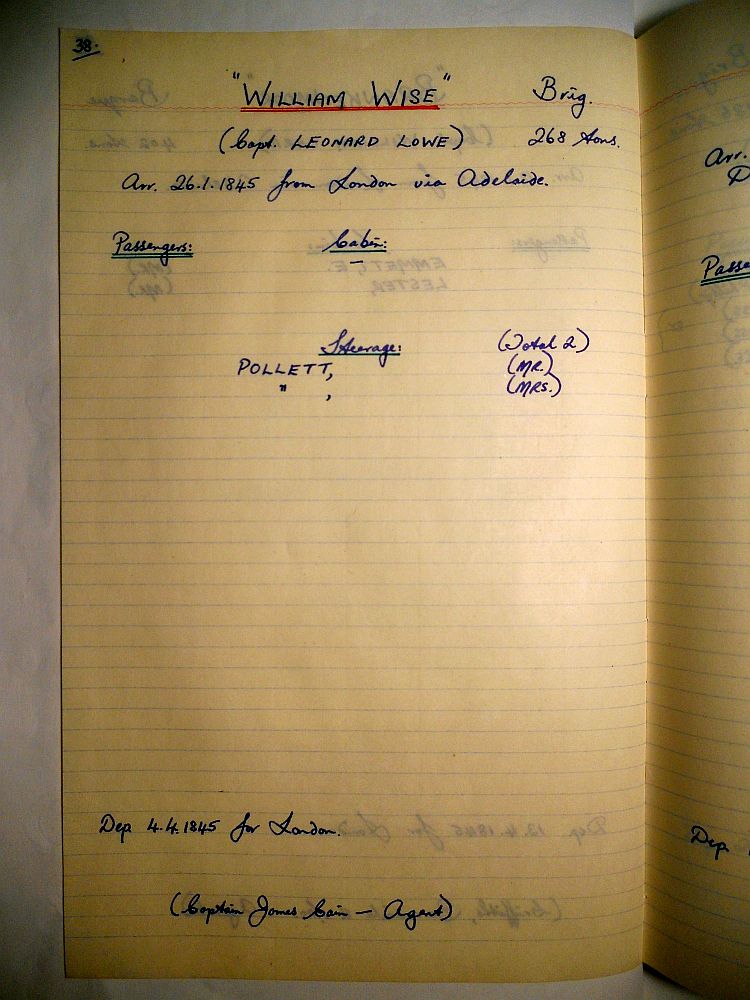 38.
"WILLIAM WISE" Brig.
(Capt. LEONARD LOWE) 268 tons.
Arr. 26.1.1845 from London via Adelaide.
Passengers: Cabin:
—
Steerage: (Total 2)
POLLETT, (MR.)
" , (MRS.)
Dep 4.4.1845 for London.
(Captain James Cain — Agent)
Arr.
Passe
Dep